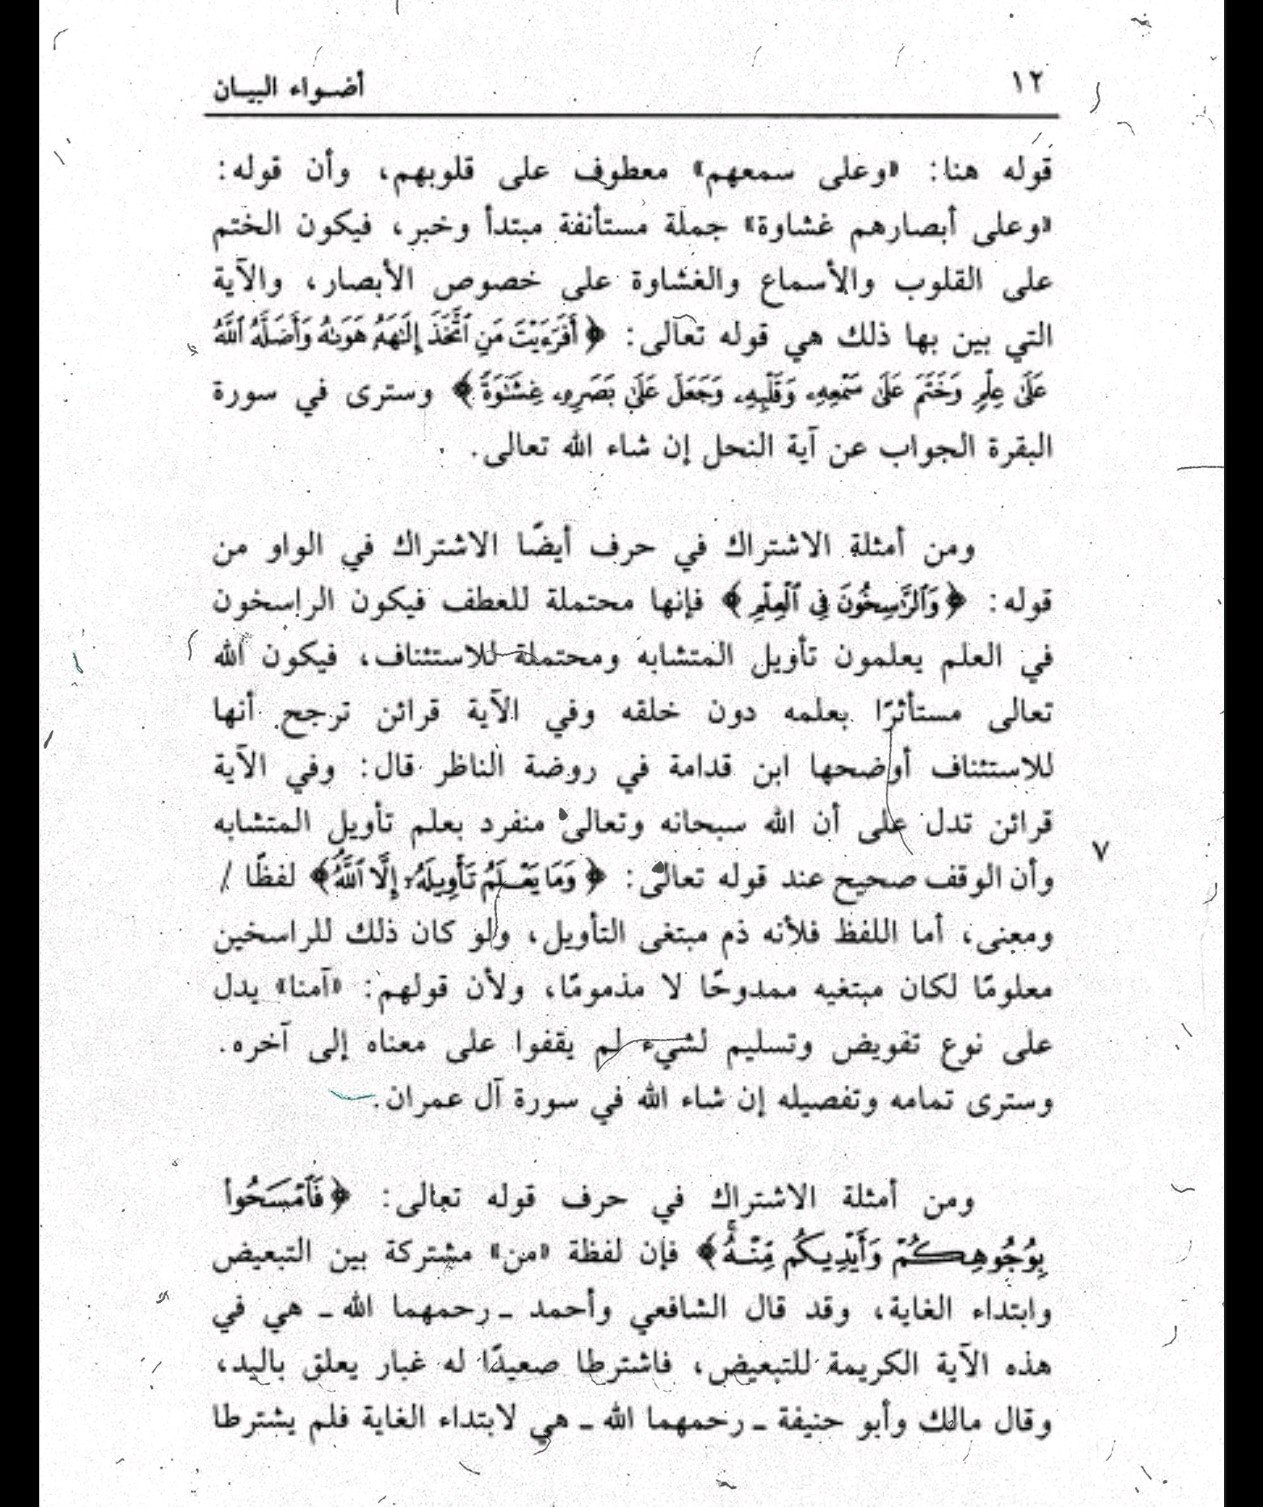 ١٢ أضواء البيان
قوله هنا: «وعلى سمعهم» معطوف على قلوبهم، وأن قوله:
«وعلى أبصارهم غشاوة» جملة مستأنفة مبتدأ وخبر، فيكون الختم
على القلوب والأسماع والغشاوة على خصوص الأبصار، والآية
التي بين بها ذلك هي قوله تعالى: ﴿أَفَرَءَيْتَ مَنِ ٱتَّخَذَ إِلَٰهَهُۥ هَوَىٰهُ وَأَضَلَّهُ ٱللَّهُ
عَلَىٰ عِلْمٍ وَخَتَمَ عَلَىٰ سَمْعِهِۦ وَقَلْبِهِۦ وَجَعَلَ عَلَىٰ بَصَرِهِۦ غِشَٰوَةً﴾ وسترى في سورة
البقرة الجواب عن آية النحل إن شاء الله تعالى.
ومن أمثلة الاشتراك في حرف أيضًا الاشتراك في الواو من
قوله: ﴿وَٱلرَّٰسِخُونَ فِي ٱلْعِلْمِ﴾ فإنها محتملة للعطف فيكون الراسخون
في العلم يعلمون تأويل المتشابه ومحتملة للاستئناف، فيكون الله
تعالى مستأثرًا بعلمه دون خلقه وفي الآية قرائن ترجح أنها
للاستئناف أوضحها ابن قدامة في روضة الناظر قال: وفي الآية
قرائن تدل على أن الله سبحانه وتعالى منفرد بعلم تأويل المتشابه
٧
وأن الوقف صحيح عند قوله تعالى: ﴿وَمَا يَعْلَمُ تَأْوِيلَهُۥٓ إِلَّا ٱللَّهُ﴾ لفظًا /
ومعنى، أما اللفظ فلأنه ذم مبتغى التأويل، ولو كان ذلك للراسخين
معلومًا لكان مبتغيه ممدوحًا لا مذمومًا، ولأن قولهم: «آمنا» يدل
على نوع تفويض وتسليم لشيء لم يقفوا على معناه إلى آخره.
وسترى تمامه وتفصيله إن شاء الله في سورة آل عمران.
ومن أمثلة الاشتراك في حرف قوله تعالى: ﴿فَٱمْسَحُوا۟
بِوُجُوهِكُمْ وَأَيْدِيكُم مِّنْهُ﴾ فإن لفظة «من» مشتركة بين التبعيض
وابتداء الغاية، وقد قال الشافعي وأحمد ـ رحمهما الله ـ هي في
هذه الآية الكريمة للتبعيض، فاشترطا صعيدًا له غبار يعلق باليد،
وقال مالك وأبو حنيفة ـ رحمهما الله ـ هي لابتداء الغاية فلم يشترطا